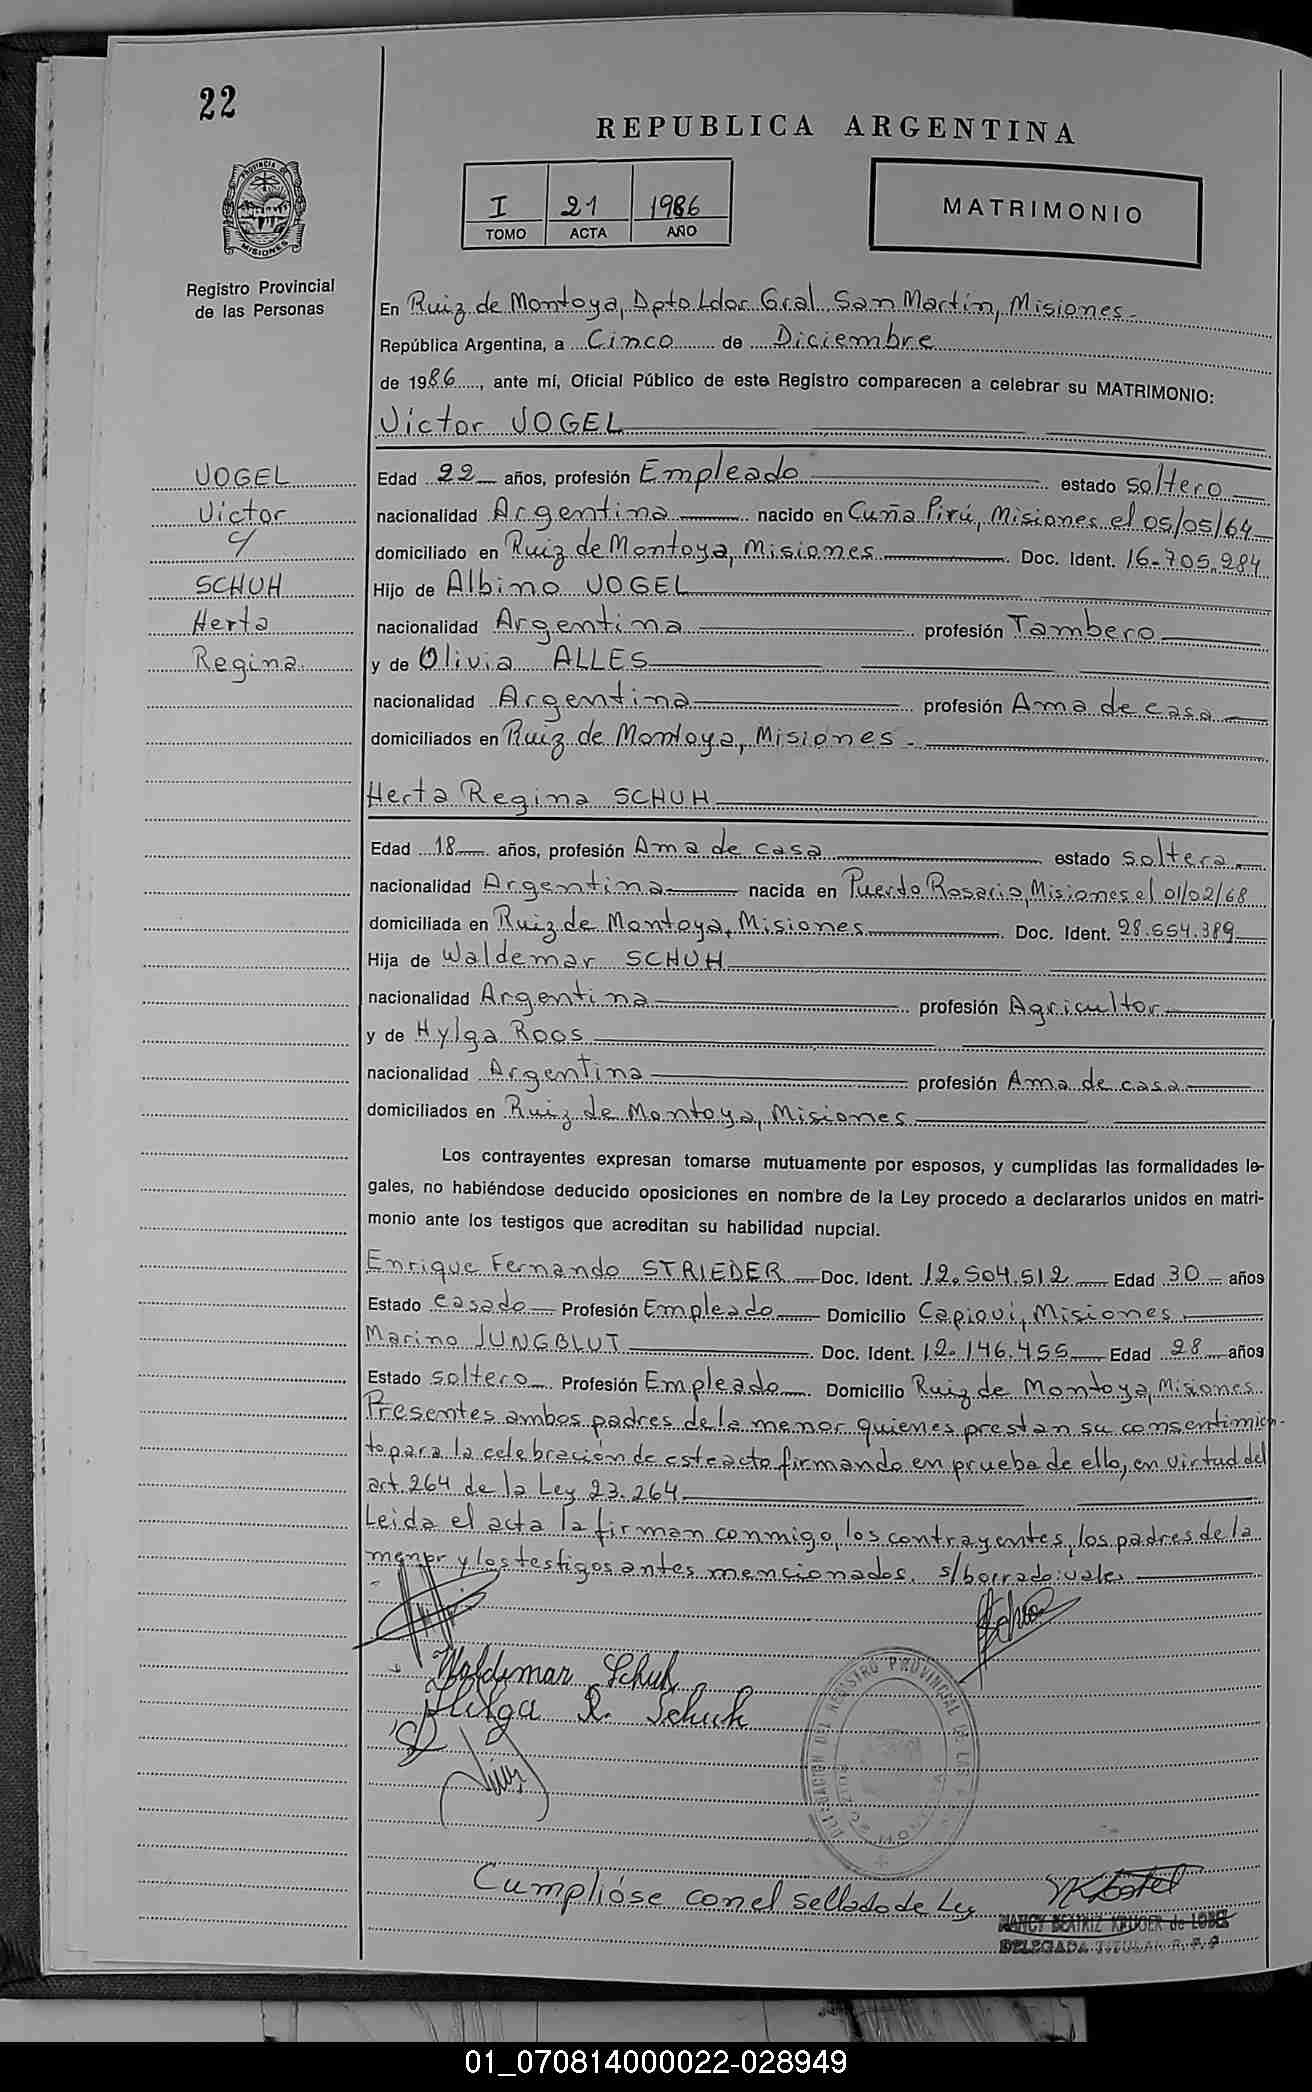 22
REPUBLICA ARGENTINA
PROVINCIA DE
MISIONES
I 21 1986
TOMO ACTA AÑO
MATRIMONIO
Registro Provincial
de las Personas
En Ruiz de Montoya, Dpto Ldor. Gral. San Martín, Misiones.-
República Argentina, a Cinco de Diciembre
de 1986, ante mí, Oficial Público de este Registro comparecen a celebrar su MATRIMONIO:
Victor VOGEL
VOGEL
Victor
c/
SCHUH
Herta
Regina
Edad 22 años, profesión Empleado estado soltero
nacionalidad Argentina nacido en Cuña Pirú, Misiones el 05/05/64
domiciliado en Ruiz de Montoya, Misiones Doc. Ident. 16.705.284
Hijo de Albino VOGEL
nacionalidad Argentina profesión Tambero
y de Olivia ALLES
nacionalidad Argentina profesión Ama de casa
domiciliados en Ruiz de Montoya, Misiones.-
Herta Regina SCHUH
Edad 18 años, profesión Ama de casa estado soltera
nacionalidad Argentina nacida en Puerto Rosario, Misiones el 01/02/68
domiciliada en Ruiz de Montoya, Misiones Doc. Ident. 28.554.389
Hija de Waldemar SCHUH
nacionalidad Argentina profesión Agricultor
y de Hylga ROOS
nacionalidad Argentina profesión Ama de casa
domiciliados en Ruiz de Montoya, Misiones
Los contrayentes expresan tomarse mutuamente por esposos, y cumplidas las formalidades le-
gales, no habiéndose deducido oposiciones en nombre de la Ley procedo a declararlos unidos en matri-
monio ante los testigos que acreditan su habilidad nupcial.
Enrique Fernando STRIEDER Doc. Ident. 12.504.512 Edad 30 años
Estado casado Profesión Empleado Domicilio Capioví, Misiones
Marino JUNGBLUT Doc. Ident. 12.146.455 Edad 28 años
Estado soltero Profesión Empleado Domicilio Ruiz de Montoya, Misiones
Presentes ambos padres de la menor quienes prestan su consentimien-
to para la celebración de este acto firmando en prueba de ello, en virtud del
art. 264 de la Ley 23.264
Leida el acta la firman conmigo, los contrayentes, los padres de la
menor y los testigos antes mencionados. s/borrado: vale.
Waldemar Schuh
Hilga R. Schuh
DELEGACION DEL REGISTRO PROVINCIAL DE LAS
RUIZ DE MONTOYA
Cumplióse con el sellado de Ley
NANCY BEATRIZ KRUGER de LOBEL
DELEGADA TITULAR R. P. P
01_070814000022-028949